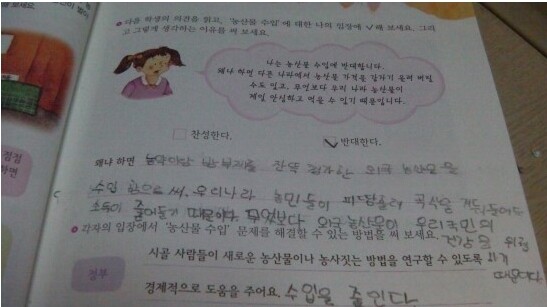 다음 학생의 의견을 읽고, '농산물 수입'에 대한 나의 입장에 V해 보세요. 그리
고 그렇게 생각하는 이유를 써 보세요.
나는 농산물 수입에 반대합니다.
왜냐 하면 다른 나라에서 농산물 가격을 갑자기 올려 버릴
수도 있고, 무엇보다 우리 나라 농산물이
제일 안심하고 먹을 수 있기 때문입니다.
찬성한다.
반대한다.
왜냐 하면 방부제를 잔뜩 첨가한 외국 농산물을
수입 함으로써, 우리나라 농민들이 피땀흘려 곡식을
소득이 줄어들기 때문이다. 무엇보다 외국농산물이 우리국민의
각자의 입장에서 '농산물 수입' 문제를 해결할 수 있는 방법을 써 보세요.
건강을 위협
하기
때문이다.
정부
시골 사람들이 새로운 농산물이나 농사짓는 방법을 연구할 수 있도록
경제적으로 도움을 주어요. 수입을 줄인다.
장점
하면